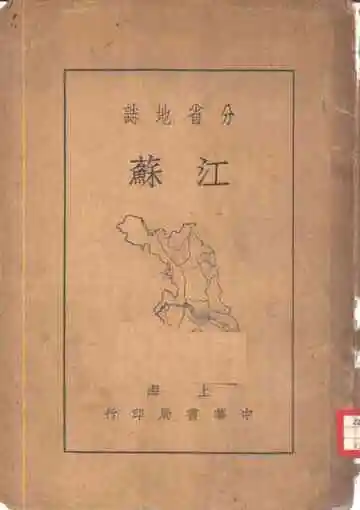 分省地誌
江蘇
上海
中華書局印行